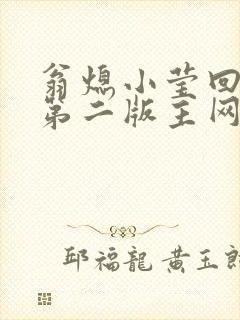 翁熄小莹回
第二版主网
邱福龙 黄玉郎